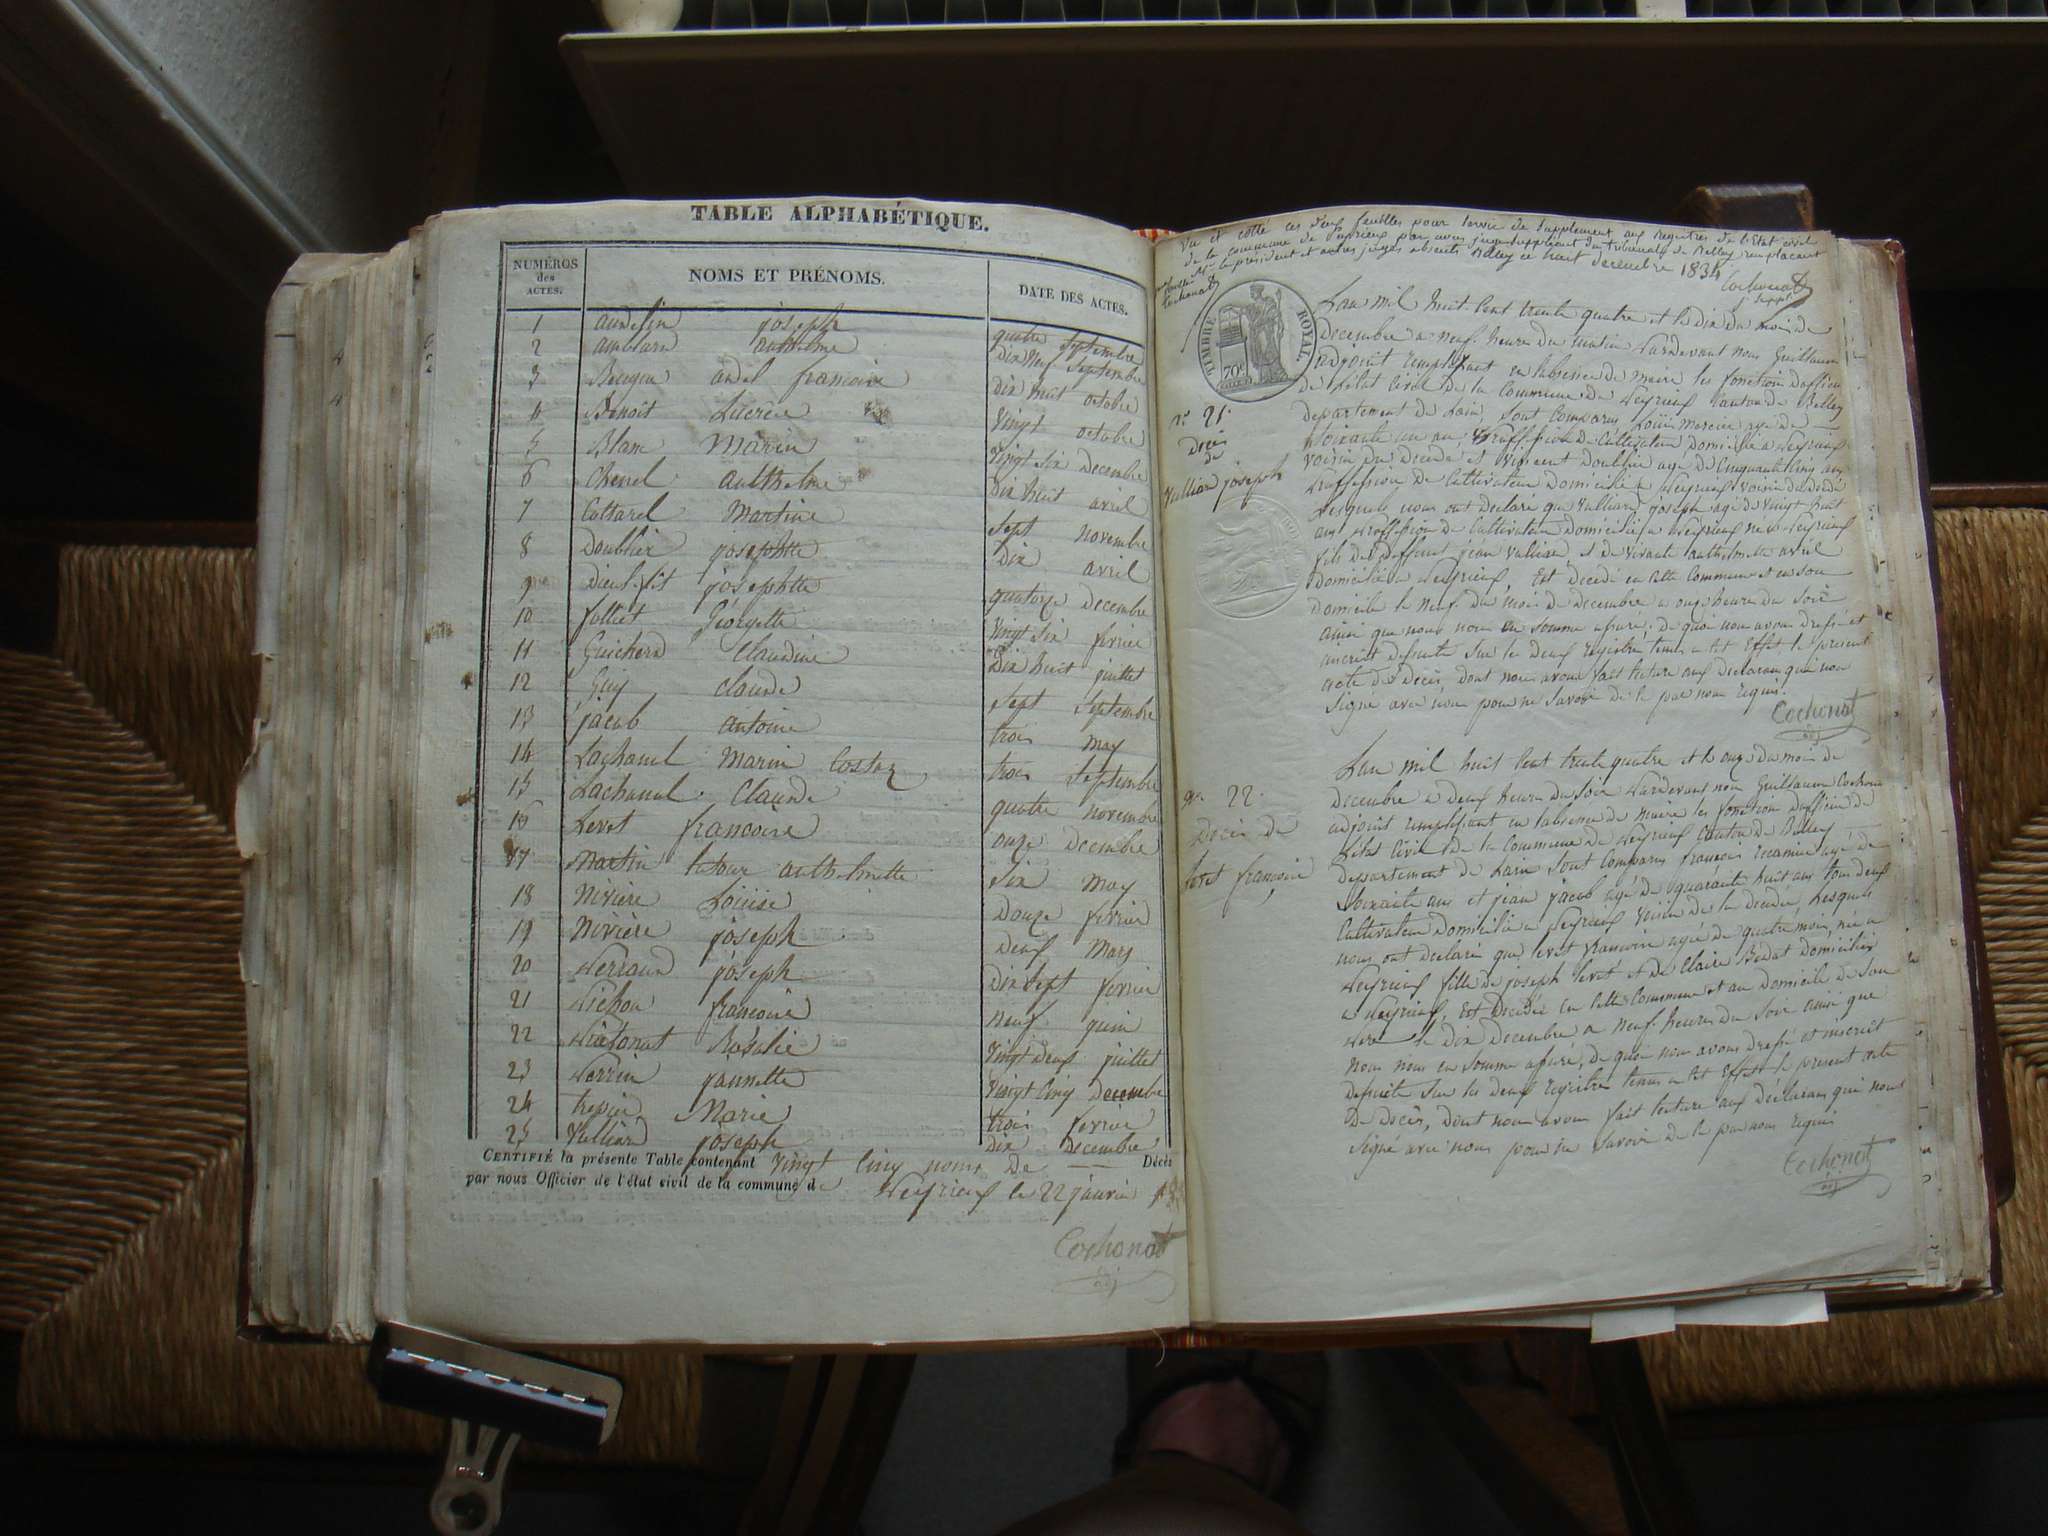 TABLE ALPHABÉTIQUE.
NUMÉROS des ACTES.
NOMS ET PRÉNOMS.
DATE DES ACTES.
1 joseph quatre septembre
2 dix neuf septembre
3 francoise dix huit octobre
4 Benoît vingt octobre
5 Blanc Marie vingt six decembre
6 dix huit avril
7 Cattarel Martine sept novembre
8 Doublier josephtte dix avril
9 Dieu-fit josephtte quatorze decembre
10 folliet Georgette vingt six fevrier
11 Guicherd Claudine dix huit juillet
12 Guy claude sept septembre
13 jacob antoine trois may
14 Lachanel Marie Costaz trois septembre
15 Lachanal Claude quatre novembre
16 Levet francoise onze decembre
17 Martin six may
18 Nivière Loüise douze fevrier
19 Nivière joseph deux mars
20 Perraud joseph dix sept fevrier
21 Pichon francoise neuf juin
22 Rosalie vingt deux juillet
23 Perrin jannette vingt cinq decembre
24 Marie trois fevrier
25 Vulliard joseph dix decembre
CERTIFIÉ la présente Table contenant vingt cinq noms de Décès
par nous Officier de l'état civil de la commune de Peyrieux le 22 janvier
Cochonat
adj
Vu et cotté ces deux feuilles pour servir de supplement aux registres de l'Etat civil
de la commune de Peyrieux par nous juge suppléant du tribunal de Belley remplacant
Mr le président et autres juges absents Belley ce huit decembre 1834
TIMBRE ROYAL
70c
n° 21.
Decès
de
Vulliard joseph
L'an mil huit cent trente quatre et le dix du mois de
decembre a neuf heures du matin Pardevant nous Guillaume
adjoint remplissant en labsence du maire les fonction dofficier
de létat Civil de la Commune de Peyrieux Canton de Belley
departement de Lain Sont Comparus Loüis Mercier age de
soixante un an Proffession de Cultivateur domicilié a Peyrieux
voisin du decede et vincent doublier age de Cinquante Cinq ans
Proffession de Cultivateur domicilié a Peyrieux voisin du decede
Lesquels nous ont declaré que Vulliard joseph agé de vingt huit
ans Proffession de Cultivateur domicilié a Peyrieux ne a Peyrieux
fils de deffunt jean Vulliard et de vivante
domicilié a Peyrieux, Est decedé en cette Commune et en son
domicile le neuf du mois de decembre a onze heures du Soir
ainsi que nous nous en somme assuré, de quoi nous avons dressé et
inscrit desuite Sur les deux registre tenus a cet Effet le present
acte de Decès, dont nous avons fait lecture aux declarans qui non
Signé avec nous pour ne Savoir de ce par nous requis.
Cochonat
adj
n° 22.
Decès de
levet francoise
L'an mil huit Cent trente quatre et le onze du mois de
decembre a deux heures du Soir Pardevant nous Guillaume Cochonat
adjoint remplissant en labsence du Maire les fonction dofficier de
létat Civil de la Commune de Peyrieux Canton de Belley
departement de Lain Sont Comparus francois agé de
Soixante ans et jean jacob agé de quarante huit ans tous deux
Cultivateur domicilié a Peyrieux voisin de la decedée, Lesquels
nous ont declaré que levet francoise agée de quatre mois, née a
Peyrieux fille de joseph levet et de Claire Bidat domiciliés
a Peyrieux, Est Decedée en cette Commune et au domicile de son
Père le dix Decembre a neuf heures du Soir ainsi que
nous nous en somme assuré, de quoi nous avons dressé et inscrit
desuite Sur les deux registre tenus a cet Effet le present acte
de decès, dont nous avons fait lecture aux déclarans qui nont
Signé avec nous pour ne Savoir de ce par nous requis
Cochonat
adj